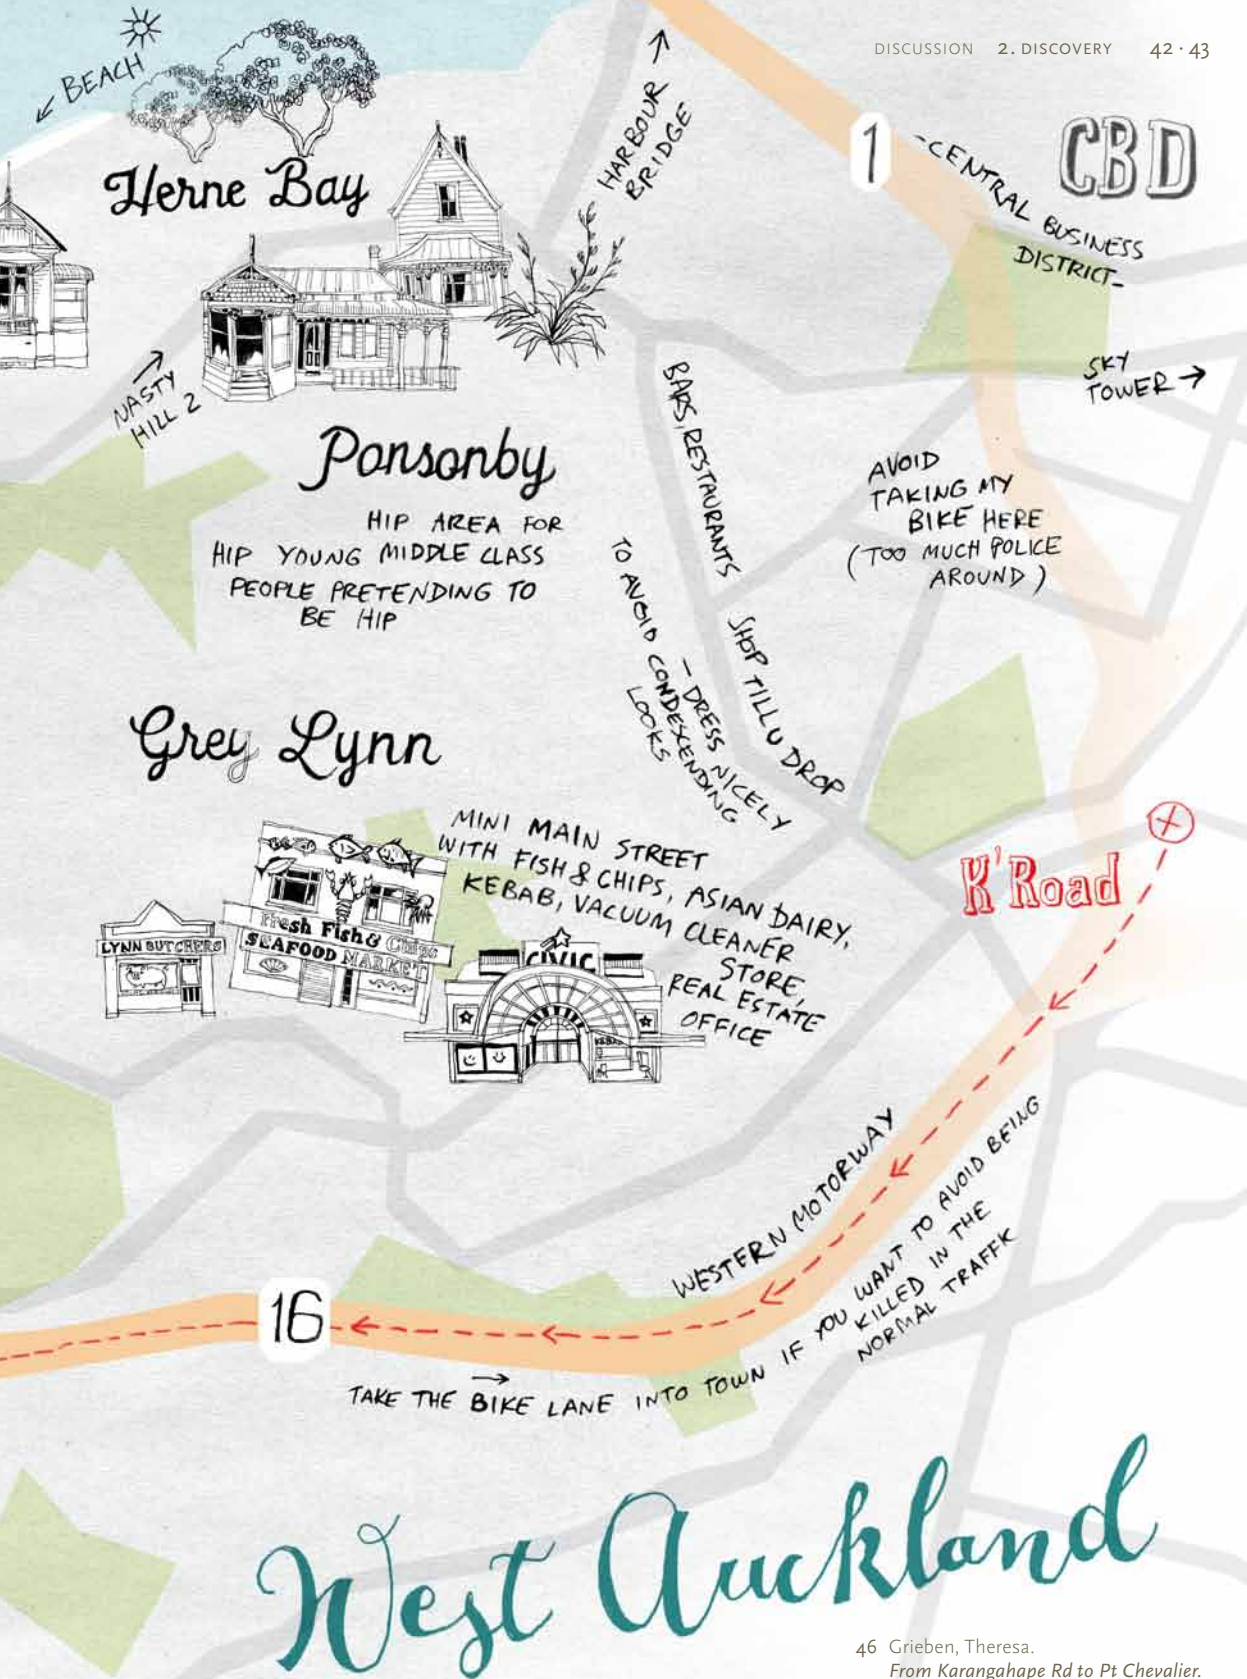 DISCUSSION 2. DISCOVERY 42 · 43
BEACH
HARBOUR
BRIDGE
1
CBD
-CENTRAL BUSINESS
DISTRICT-
Herne Bay
SKY
TOWER
NASTY
HILL 2
Ponsonby
HIP AREA FOR
HIP YOUNG MIDDLE CLASS
PEOPLE PRETENDING TO
BE HIP
BARS, RESTAURANTS
SHOP TILL U DROP
AVOID
TAKING MY
BIKE HERE
(TOO MUCH POLICE
AROUND)
- DRESS NICELY
TO AVOID CONDESCENDING
LOOKS
Grey Lynn
MINI MAIN STREET
WITH FISH & CHIPS, ASIAN DAIRY,
KEBAB, VACUUM CLEANER
STORE,
REAL ESTATE
OFFICE
LYNN BUTCHERS
Fresh Fish & Chips
SEAFOOD MARKET
CIVIC
KEBAB
K'Road
WESTERN MOTORWAY
16
TAKE THE BIKE LANE INTO TOWN IF YOU WANT TO AVOID BEING
KILLED IN THE
NORMAL TRAFFIK
West Auckland
46 Grieben, Theresa.
From Karangahape Rd to Pt Chevalier.